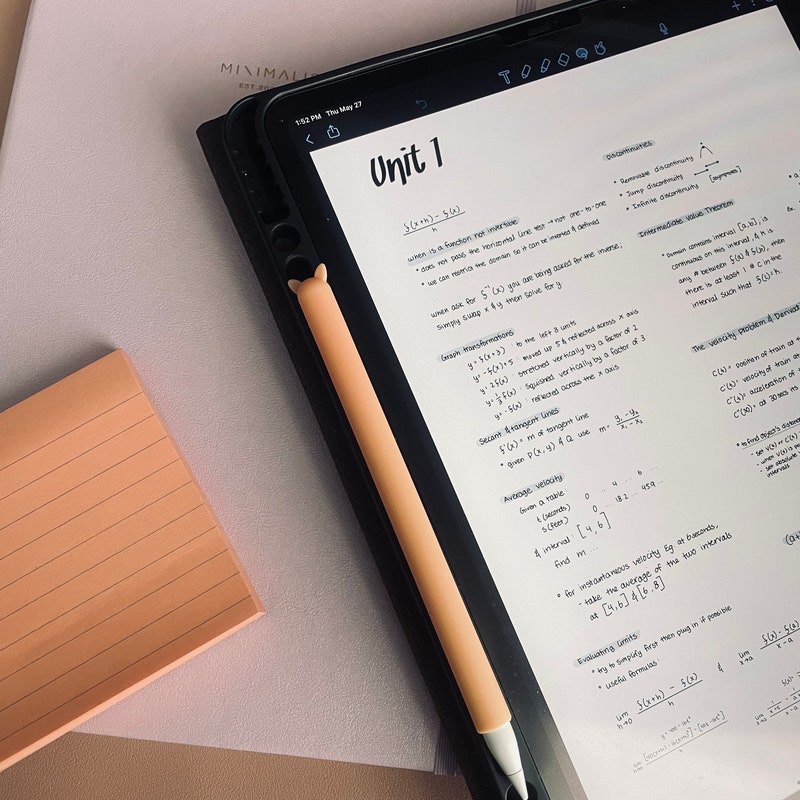 MINIMALIS
EST.20
1:52 PM Thu May 27
Unit 1
f(x+h) - f(x)
h
when is a function not invertible
• does not pass the horizontal line test → not one-to-one
• we can restrict the domain so it can be inverted & defined
when ask for f⁻¹(x) you are being asked for the inverse,
simply swap x & y then solve for y
Graph transformations
y = f(x+3) : to the left 3 units
y = -f(x)+5 : moved up 5 & reflected across x axis
y = 2f(x) : stretched vertically by a factor of 2
y = 1/3 f(x) : squished vertically by a factor of 3
y = -f(x) : reflected across the x axis
Secant & tangent lines
f'(x) = m of tangent line
• given P(x,y) & Q use m = y₁-y₂ / x₁-x₂
Average velocity
Given a table:
t (seconds) 0 ... 4 ... 6 ...
s (feet) 0 ... 182 ... 459...
& interval [4,6]
find m ...
• for instantaneous velocity Eg at 6seconds,
- take the average of the two intervals
at [4,6] & [6,8]
Evaluating Limits
• try to simplify first then plug in if possible
• useful formulas:
lim h→0 f(x+h) - f(x) / h & lim x→a f(x) - f(a) / x-a
Discontinuities
• Removable discontinuity
• Jump discontinuity
• Infinite discontinuity [asymptotes]
Intermediate value Theorem
• Domain contains interval [a,b], is
continuous on this interval, & h is
any # between f(a) & f(b), then
there is at least 1 # c in the
interval such that f(c)=h.
The velocity problem & Derivat
C(t) = position of train at t
C'(t) = velocity of train at
C"(t) = acceleration of t
C"(30) = at 30 secs its
• to find object's distan
- set v(t) or c'(t)
- when v(t) is
- set absolute
intervals